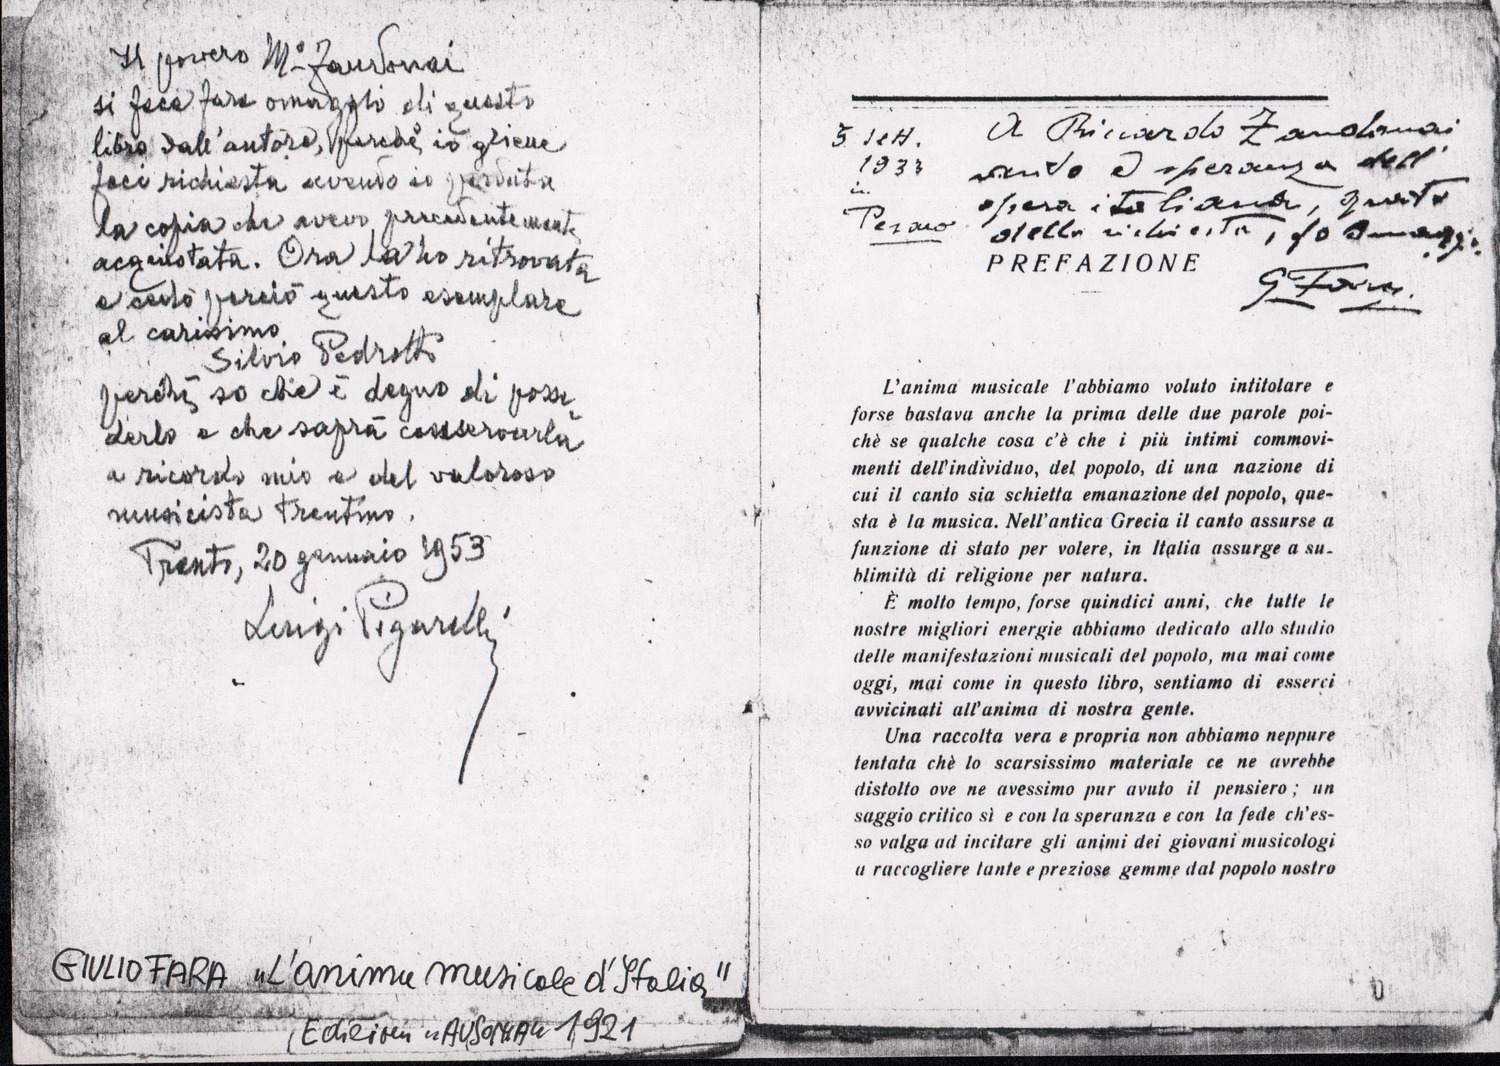 Il povero M.º Zandonai
si fece fare omaggio di questo
libro dall'autore, perchè io gliene
feci richiesta avendo io perduta
la copia che avevo precedentemente
acquistata. Ora la ho ritrovata
e cedo perciò questo esemplare
al carissimo
Silvio Pedrotti
perchè so che è degno di posse-
derlo e che saprà conservarla
a ricordo mio e del valoroso
musicista trentino.
Trento, 20 gennaio 1953
Luigi Pigarelli
GIULIO FARA "L'anima musicale d'Italia"
(Edizioni "AUSONIA" 1921
5 sett.
1933
in
Pesaro
A Riccardo Zandonai
vanto e speranza dell'
opera italiana, grato
della richiesta, fo omaggio.
G Fara.
PREFAZIONE
L'anima musicale l'abbiamo voluto intitolare e
forse bastava anche la prima delle due parole poi-
chè se qualche cosa c'è che i più intimi commovi-
menti dell'individuo, del popolo, di una nazione di
cui il canto sia schietta emanazione del popolo, que-
sta è la musica. Nell'antica Grecia il canto assurse a
funzione di stato per volere, in Italia assurge a su-
blimità di religione per natura.
È molto tempo, forse quindici anni, che tutte le
nostre migliori energie abbiamo dedicato allo studio
delle manifestazioni musicali del popolo, ma mai come
oggi, mai come in questo libro, sentiamo di esserci
avvicinati all'anima di nostra gente.
Una raccolta vera e propria non abbiamo neppure
tentata chè lo scarsissimo materiale ce ne avrebbe
distolto ove ne avessimo pur avuto il pensiero ; un
saggio critico sì e con la speranza e con la fede ch'es-
so valga ad incitare gli animi dei giovani musicologi
a raccogliere tante e preziose gemme dal popolo nostro